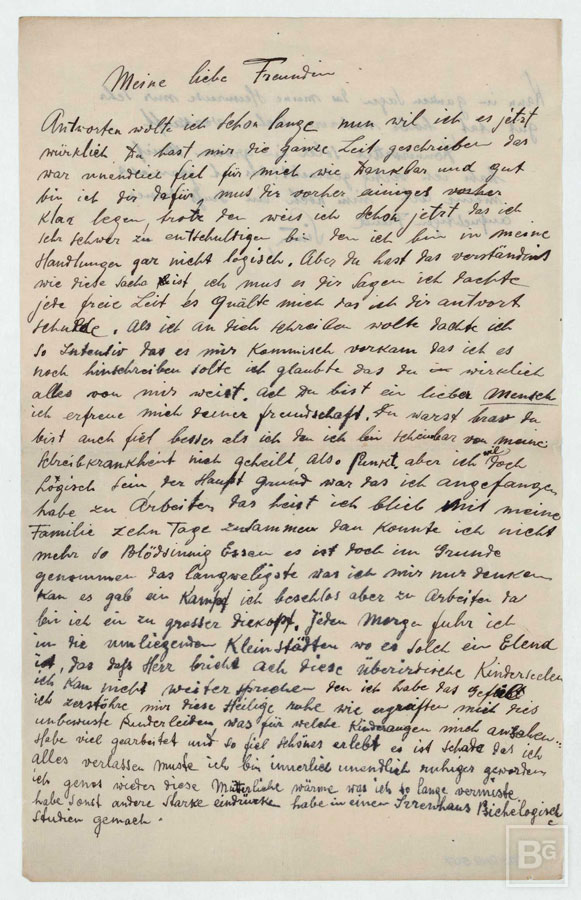 Meine liebe Freundin
Antworten wolte ich schon lange nun wil ich es jetzt
würklich Du hast mir die ganse Zeit geschrieben das
war unendlich fiel für mich wie Dankbar und gut
bin ich dir dafür, mus dir vorher einiges vorher
klar legen, trotz den weis ich schon jetzt das ich
sehr schwer zu entschultigen bin den ich bin in meine
Handlungen gar nicht logisch. Aber du hast das verständnis
wie diese Sache ist ich mus es dir sagen ich dachte
jede freie Zeit es Quälte mich das ich dir antwort
schulde. Als ich an dich schreiben wolte dachte ich
so intentiv das es mir kommisch vorkam das ich es
noch hinschreiben solte ich glaubte das du wirklich
alles von mir weist. Ach Du bist ein lieber Mensch
ich erfreue mich deiner freundschaft. Du warst brav du
bist auch fiel besser als ich den ich bin scheinbar von meine
schreibkrankheit nich geheilt, also Punkt. aber ich wil doch
Logisch sein der Haupt grund war das ich angefangen
habe zu Arbeiten das heist ich blieb mit meine
Familie zehn Tage zusammen dan konnte ich nicht
mehr so Blödsinnig Essen es ist doch im Grunde
genommen das langweligste was ich mir nur denken
kan es gab ein Kampf ich beschlos aber zu Arbeiten da
bin ich ein zu grosser dickopf. Jeden Morgen fuhr ich
in die umliegenden Kleinstädten wo es solch ein Elend
ist, das dass Herz bricht ach diese überirdische Kinderseelen
ich kan nicht weiter sprechen den ich habe das gefühl
ich zerstöhre mir diese Heilige ruhe wie ergriffen mich dies
unbewuste Kinderleiden was für welche Kinderaugen mich ansahen..
Habe viel gearbeitet und so fiel schönes erlebt es ist schade das ich
alles verlassen muste ich bin innerlich unendlich ruhiger geworden
ich genos wieder diese Mütterliche wärme was ich so lange vermiste
habe sonst andere starke eindrücke habe in einen Irrenhaus Psichologisch
studien gemach.
BG